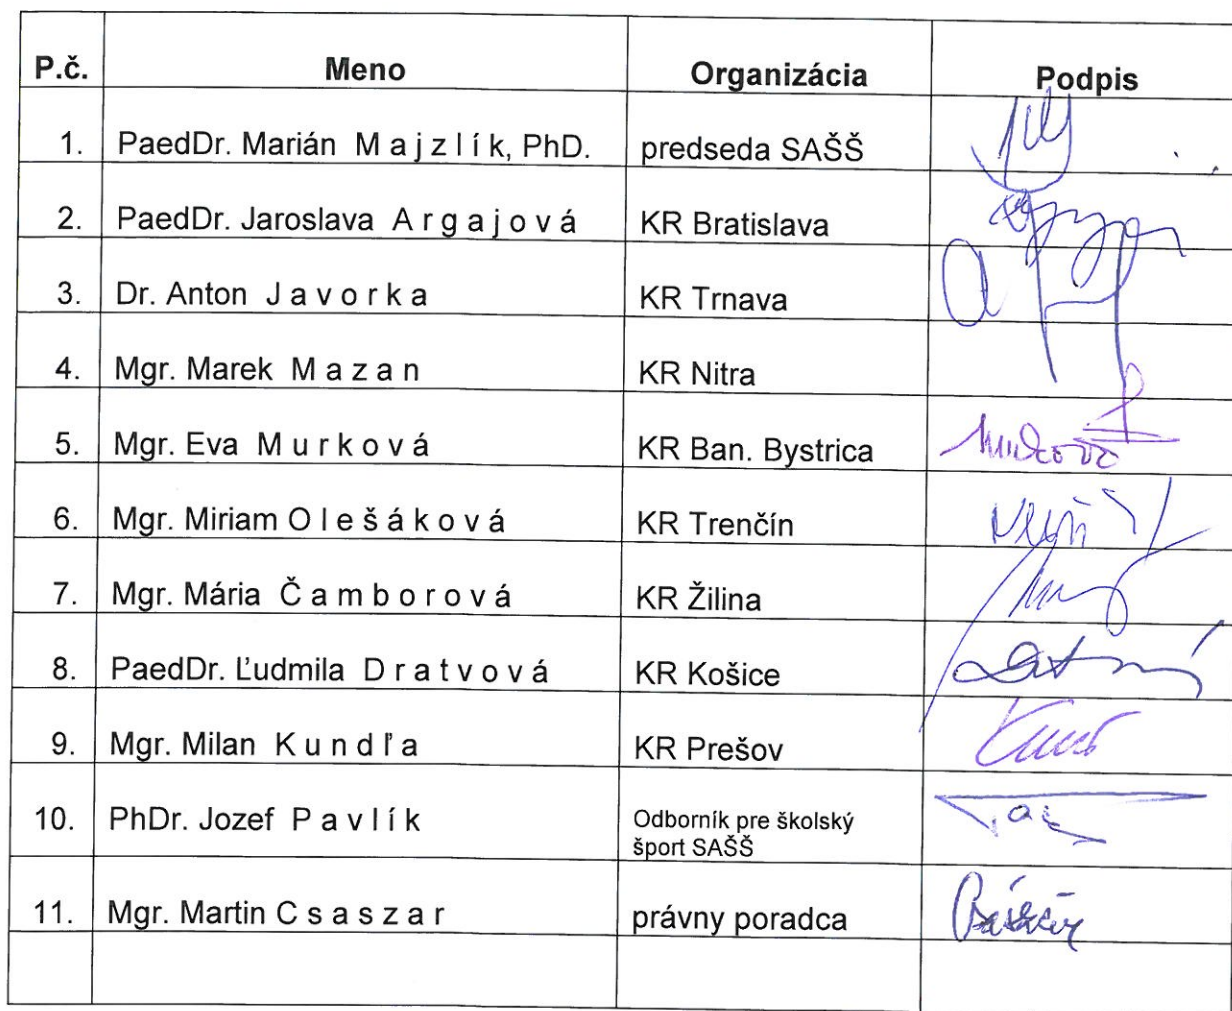 P.č. Meno Organizácia Podpis
1. PaedDr. Marián M a j z l í k, PhD. predseda SAŠŠ
2. PaedDr. Jaroslava A r g a j o v á KR Bratislava
3. Dr. Anton J a v o r k a KR Trnava
4. Mgr. Marek M a z a n KR Nitra
5. Mgr. Eva M u r k o v á KR Ban. Bystrica
6. Mgr. Miriam O l e š á k o v á KR Trenčín
7. Mgr. Mária Č a m b o r o v á KR Žilina
8. PaedDr. Ľudmila D r a t v o v á KR Košice
9. Mgr. Milan K u n d ľ a KR Prešov
10. PhDr. Jozef P a v l í k Odborník pre školský
šport SAŠŠ
11. Mgr. Martin C s a s z a r právny poradca